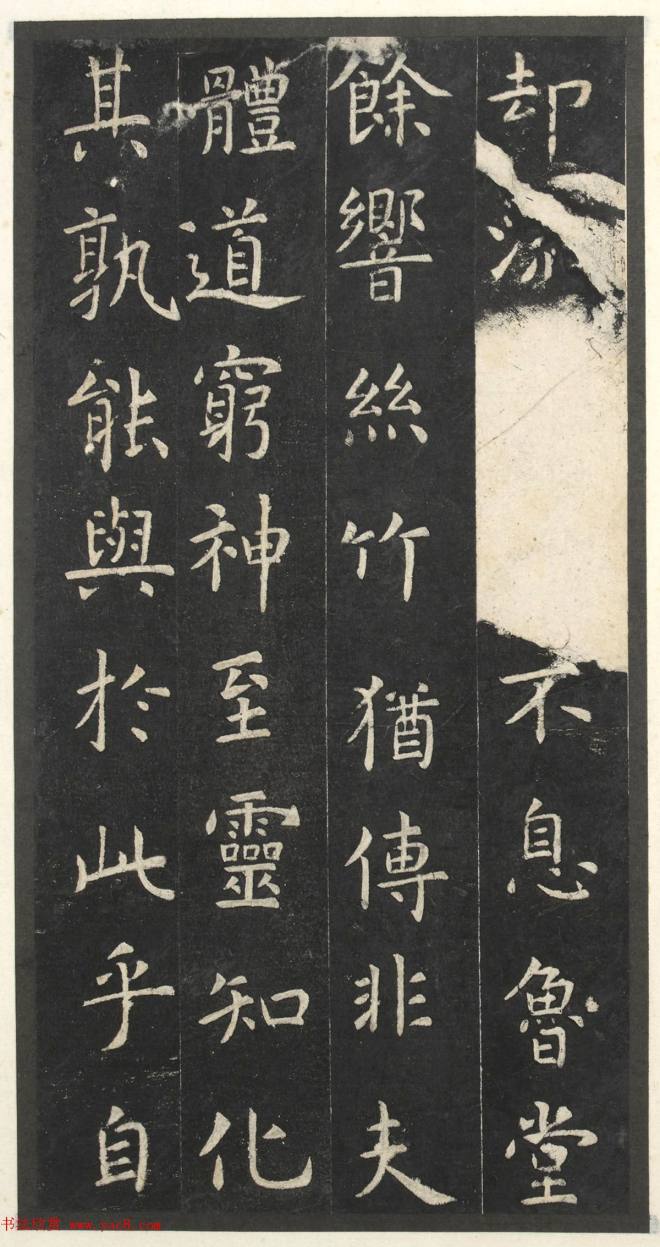 却不息魯堂
餘響絲竹猶傳非夫
體道窮神至靈知化
其孰能與於此乎自
书法欣赏 www.yac8.com